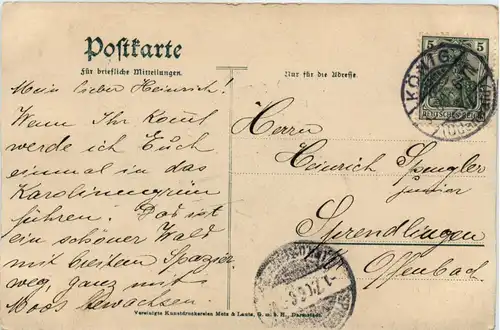 Postkarte
Für briefliche Mitteilungen.
Nur für die Adresse.
Mein lieber Heinrich!
Wenn Ihr Komt
werde ich Euch
einmal in das
Karolinengrün
führen. Das ist
ein schöner Wald
mit breitem Spazier
weg, ganz mit
Moos bewachsen.
Herrn
Heinrich Spengler
junior
Sprendlingen
Offenbach
5 5
DEUTSCHES REICH
KÖNIG
Vereinigte Kunstdruckereien Metz & Lautz, G. m. b. H., Darmstadt.